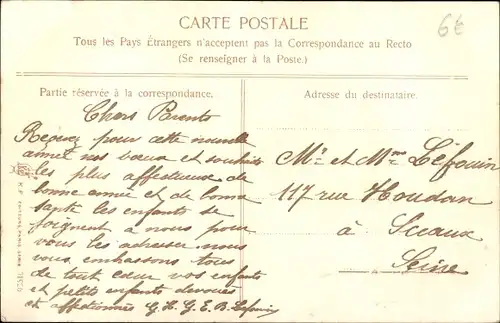 CARTE POSTALE
6€
Tous les Pays Étrangers n'acceptent pas la Correspondance au Recto
(Se renseigner à la Poste.)
Partie réservée à la correspondance.
Chers Parents
Recevez pour cette nouvelle
année nos vœux et souhaits
les plus affectueux de
bonne année et de bonne
santé les enfants se
joignent a nous pour
vous les adresser nous
vous embrassons tous
de tout cœur vos enfants
et petits enfants dévoués
et affectionnés G. H. G. E. B. Léfouin
Adresse du destinataire.
Mr et Mme Léfouin
117 rue Houdan
à Sceaux
Seine
K.F.